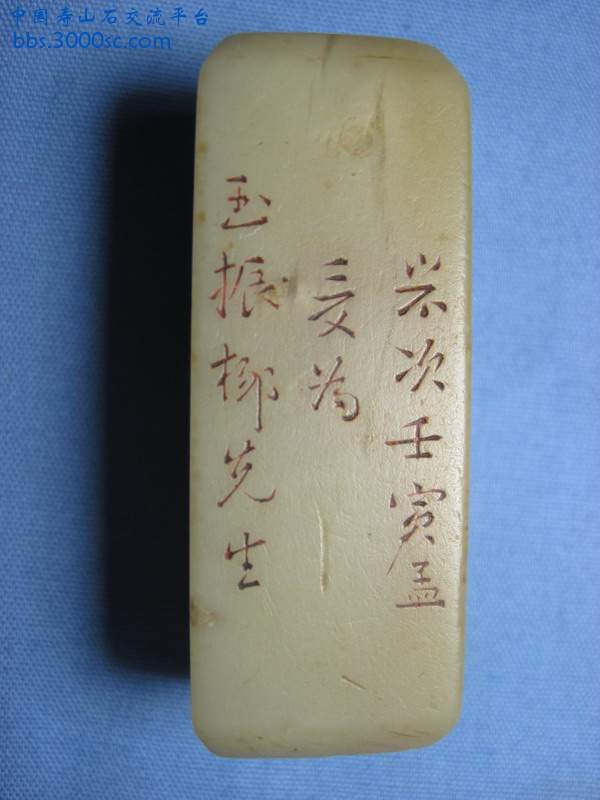 中国寿山石交流平台
bbs.3000sc.com
岁次壬寅孟
夏为
玉振先生